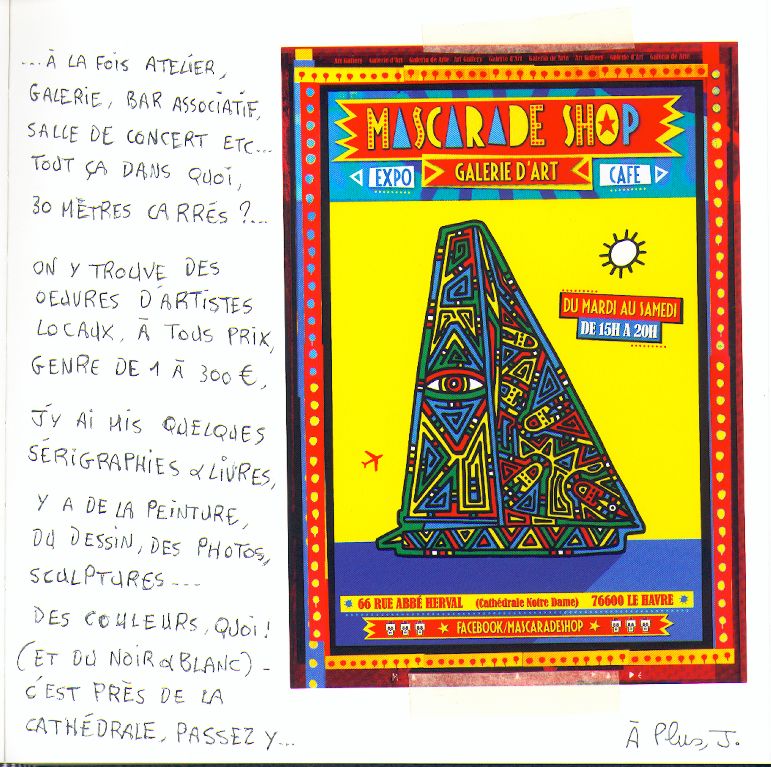 ...À LA FOIS ATELIER,
GALERIE, BAR ASSOCIATIF,
SALLE DE CONCERT ETC...
TOUT ÇA DANS QUOI,
30 MÈTRES CARRÉS ?...
ON Y TROUVE DES
OEUVRES D'ARTISTES
LOCAUX, À TOUS PRIX,
GENRE DE 1 À 300 €,
J'Y AI MIS QUELQUES
SÉRIGRAPHIES & LIVRES,
Y A DE LA PEINTURE,
DU DESSIN, DES PHOTOS,
SCULPTURES...
DES COULEURS, QUOI!
(ET DU NOIR & BLANC) -
C'EST PRÈS DE LA
CATHÉDRALE, PASSEZ Y...
Art Gallery Galerie d'Art Galeria de Arte Art Gallery Galerie d'Art Galeria de Arte Art Gallery Galerie d'Art Galeria de Arte
MASCARADE SHOP
EXPO
GALERIE D'ART
CAFE
DU MARDI AU SAMEDI
DE 15H A 20H
66 RUE ABBÉ HERVAL (Cathédrale Notre Dame) 76600 LE HAVRE
FACEBOOK/MASCARADESHOP
À Plus, J.